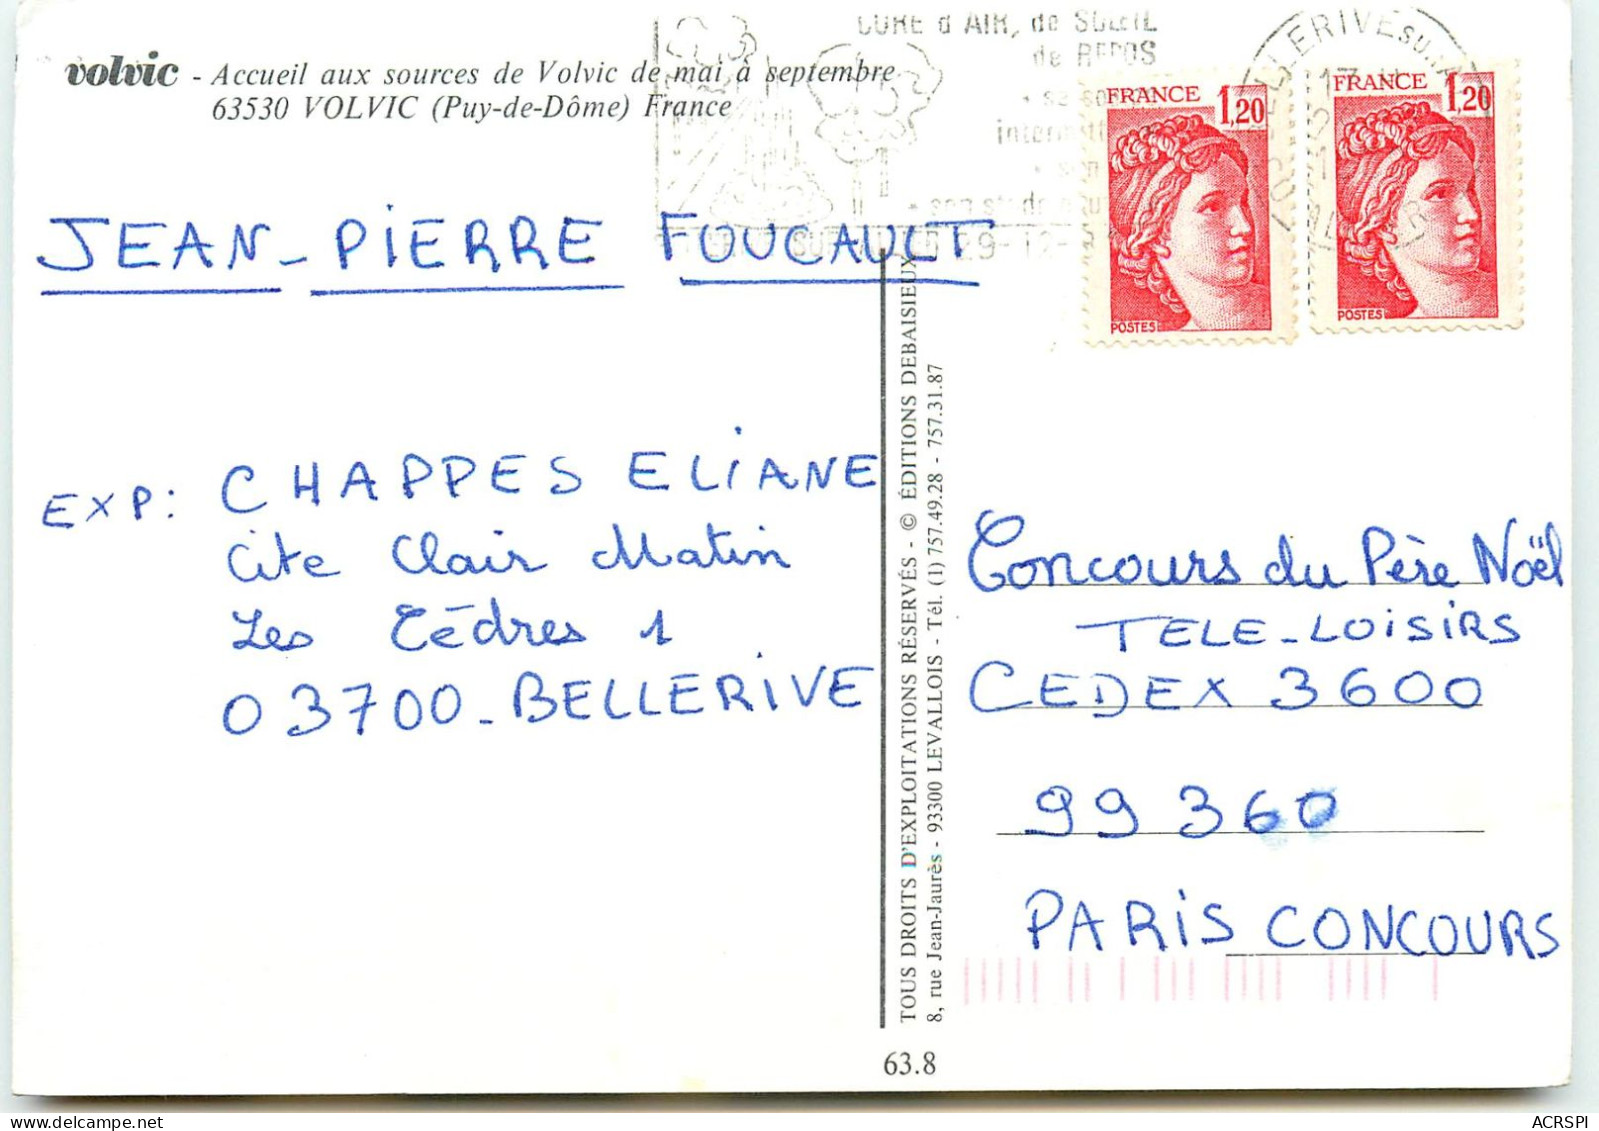 CURE d'AIR, de SOLEIL
de REPOS
volvic - Accueil aux sources de Volvic de mai à septembre
63530 VOLVIC (Puy-de-Dôme) France
FRANCE 1,20
POSTES
FRANCE 1,20
POSTES
JEAN-PIERRE FOUCAULT
EXP: CHAPPES ELIANE
Cite Clair Matin
Les Cédres 1
03700-BELLERIVE
TOUS DROITS D'EXPLOITATIONS RÉSERVÉS - © ÉDITIONS DEBAISIEUX
8, rue Jean-Jaurès - 93300 LEVALLOIS - Tél. (1) 757.49.28 - 757.31.87
Concours du Père Noël
TELE-LOISIRS
CEDEX 3600
99360
PARIS CONCOURS
63.8
ACRSPI